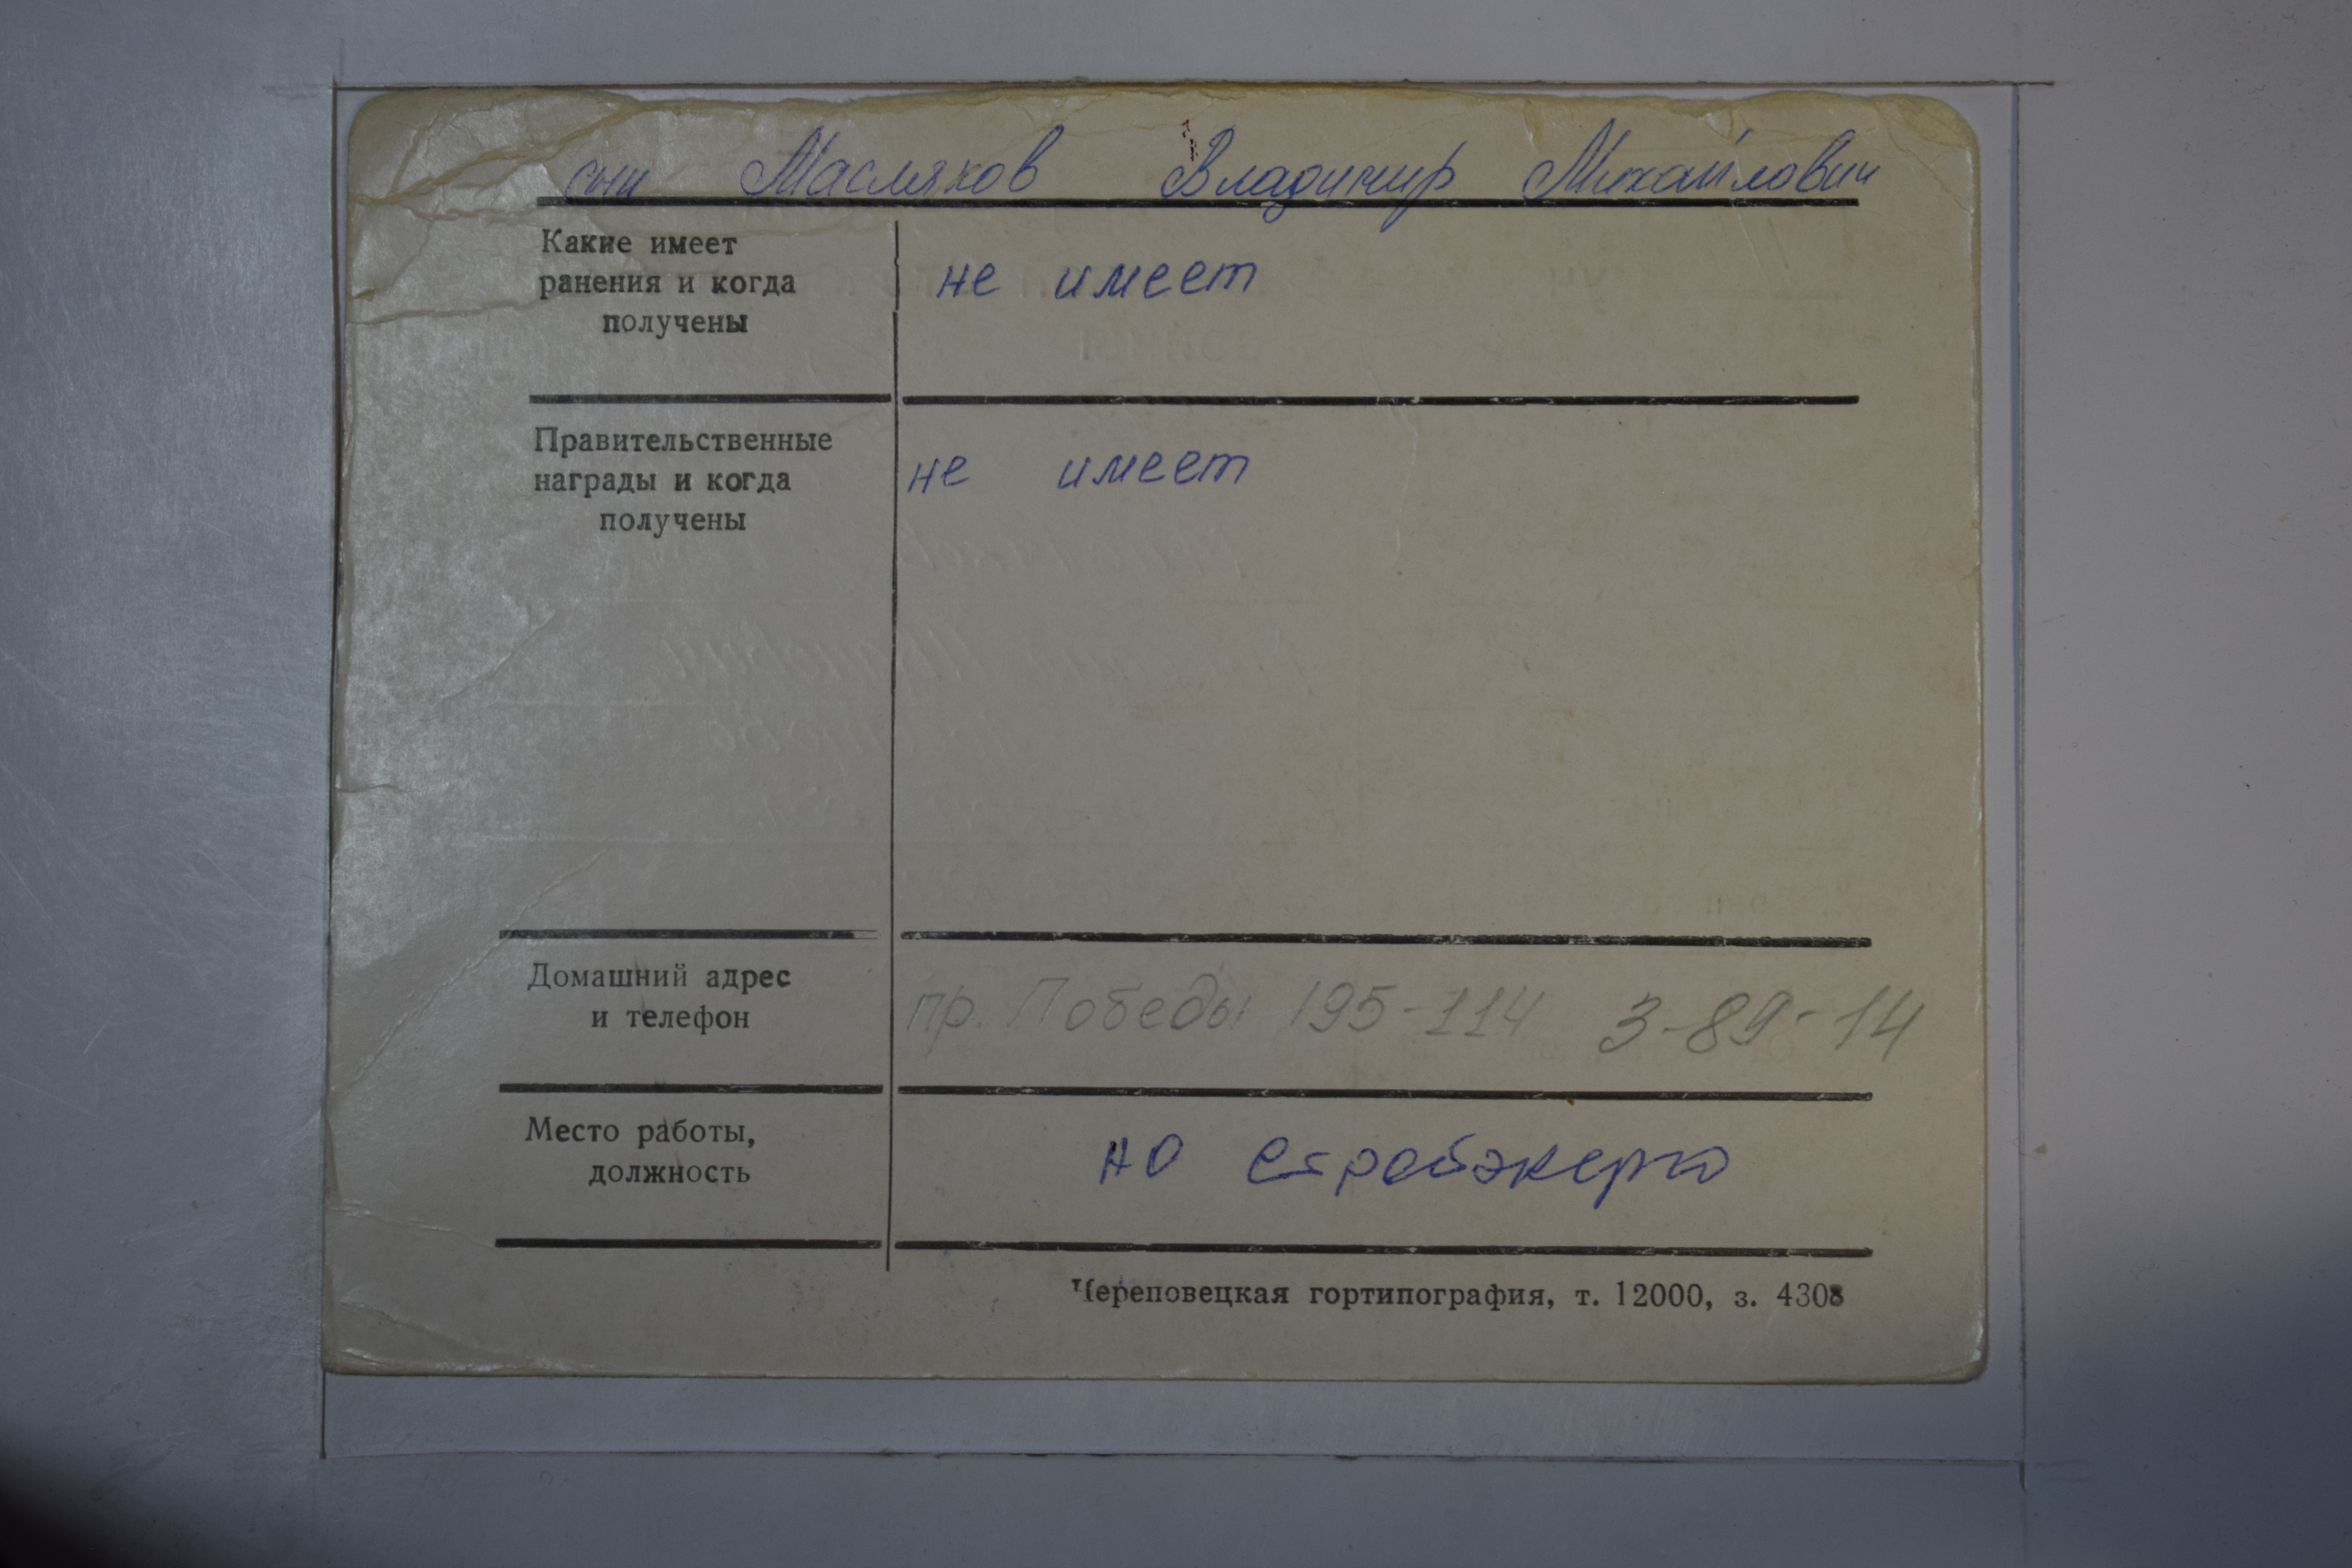 сын Масляков Владимир Михайлович
Какие имеет
ранения и когда
получены
не имеет
Правительственные
награды и когда
получены
не имеет
Домашний адрес
и телефон
пр. Победы 195-114 3-89-14
Место работы,
должность
АО
Череповецкая гортипография, т. 12000, з. 4308